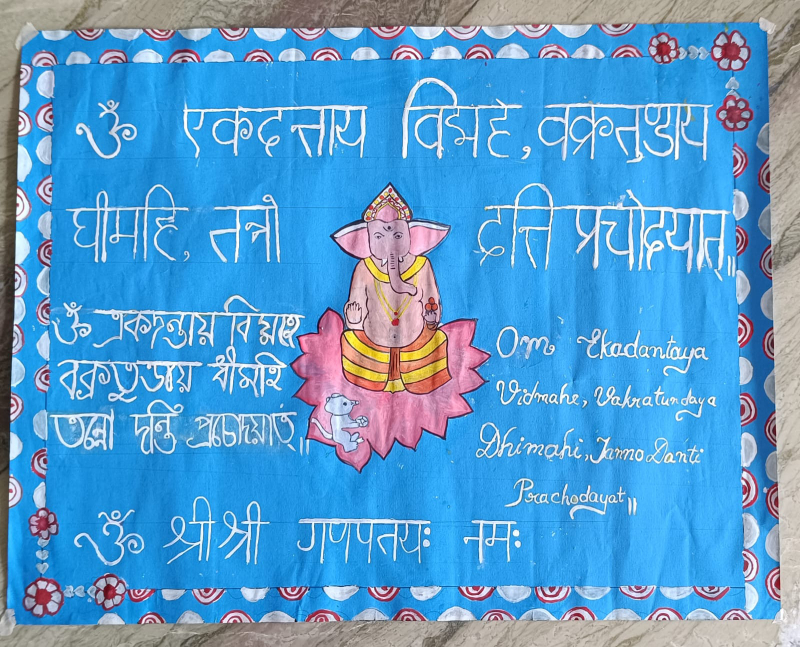 ॐ एकदत्ताय विद्महे, वक्रतुण्डाय
घीमहि, तन्नो द्रत्ति प्रचोदयात्॥
ॐ একদন্তায় বিদ্মহে
বক্রতুন্ডায় ধীমহি
তন্নো দন্তি প্রচোদয়াৎ॥
Om Ekadantaya
Vidmahe, Vakratundaya
Dhimahi, Tanno Danti
Prachodayat॥
ॐ श्री श्री गणपतयः नमः